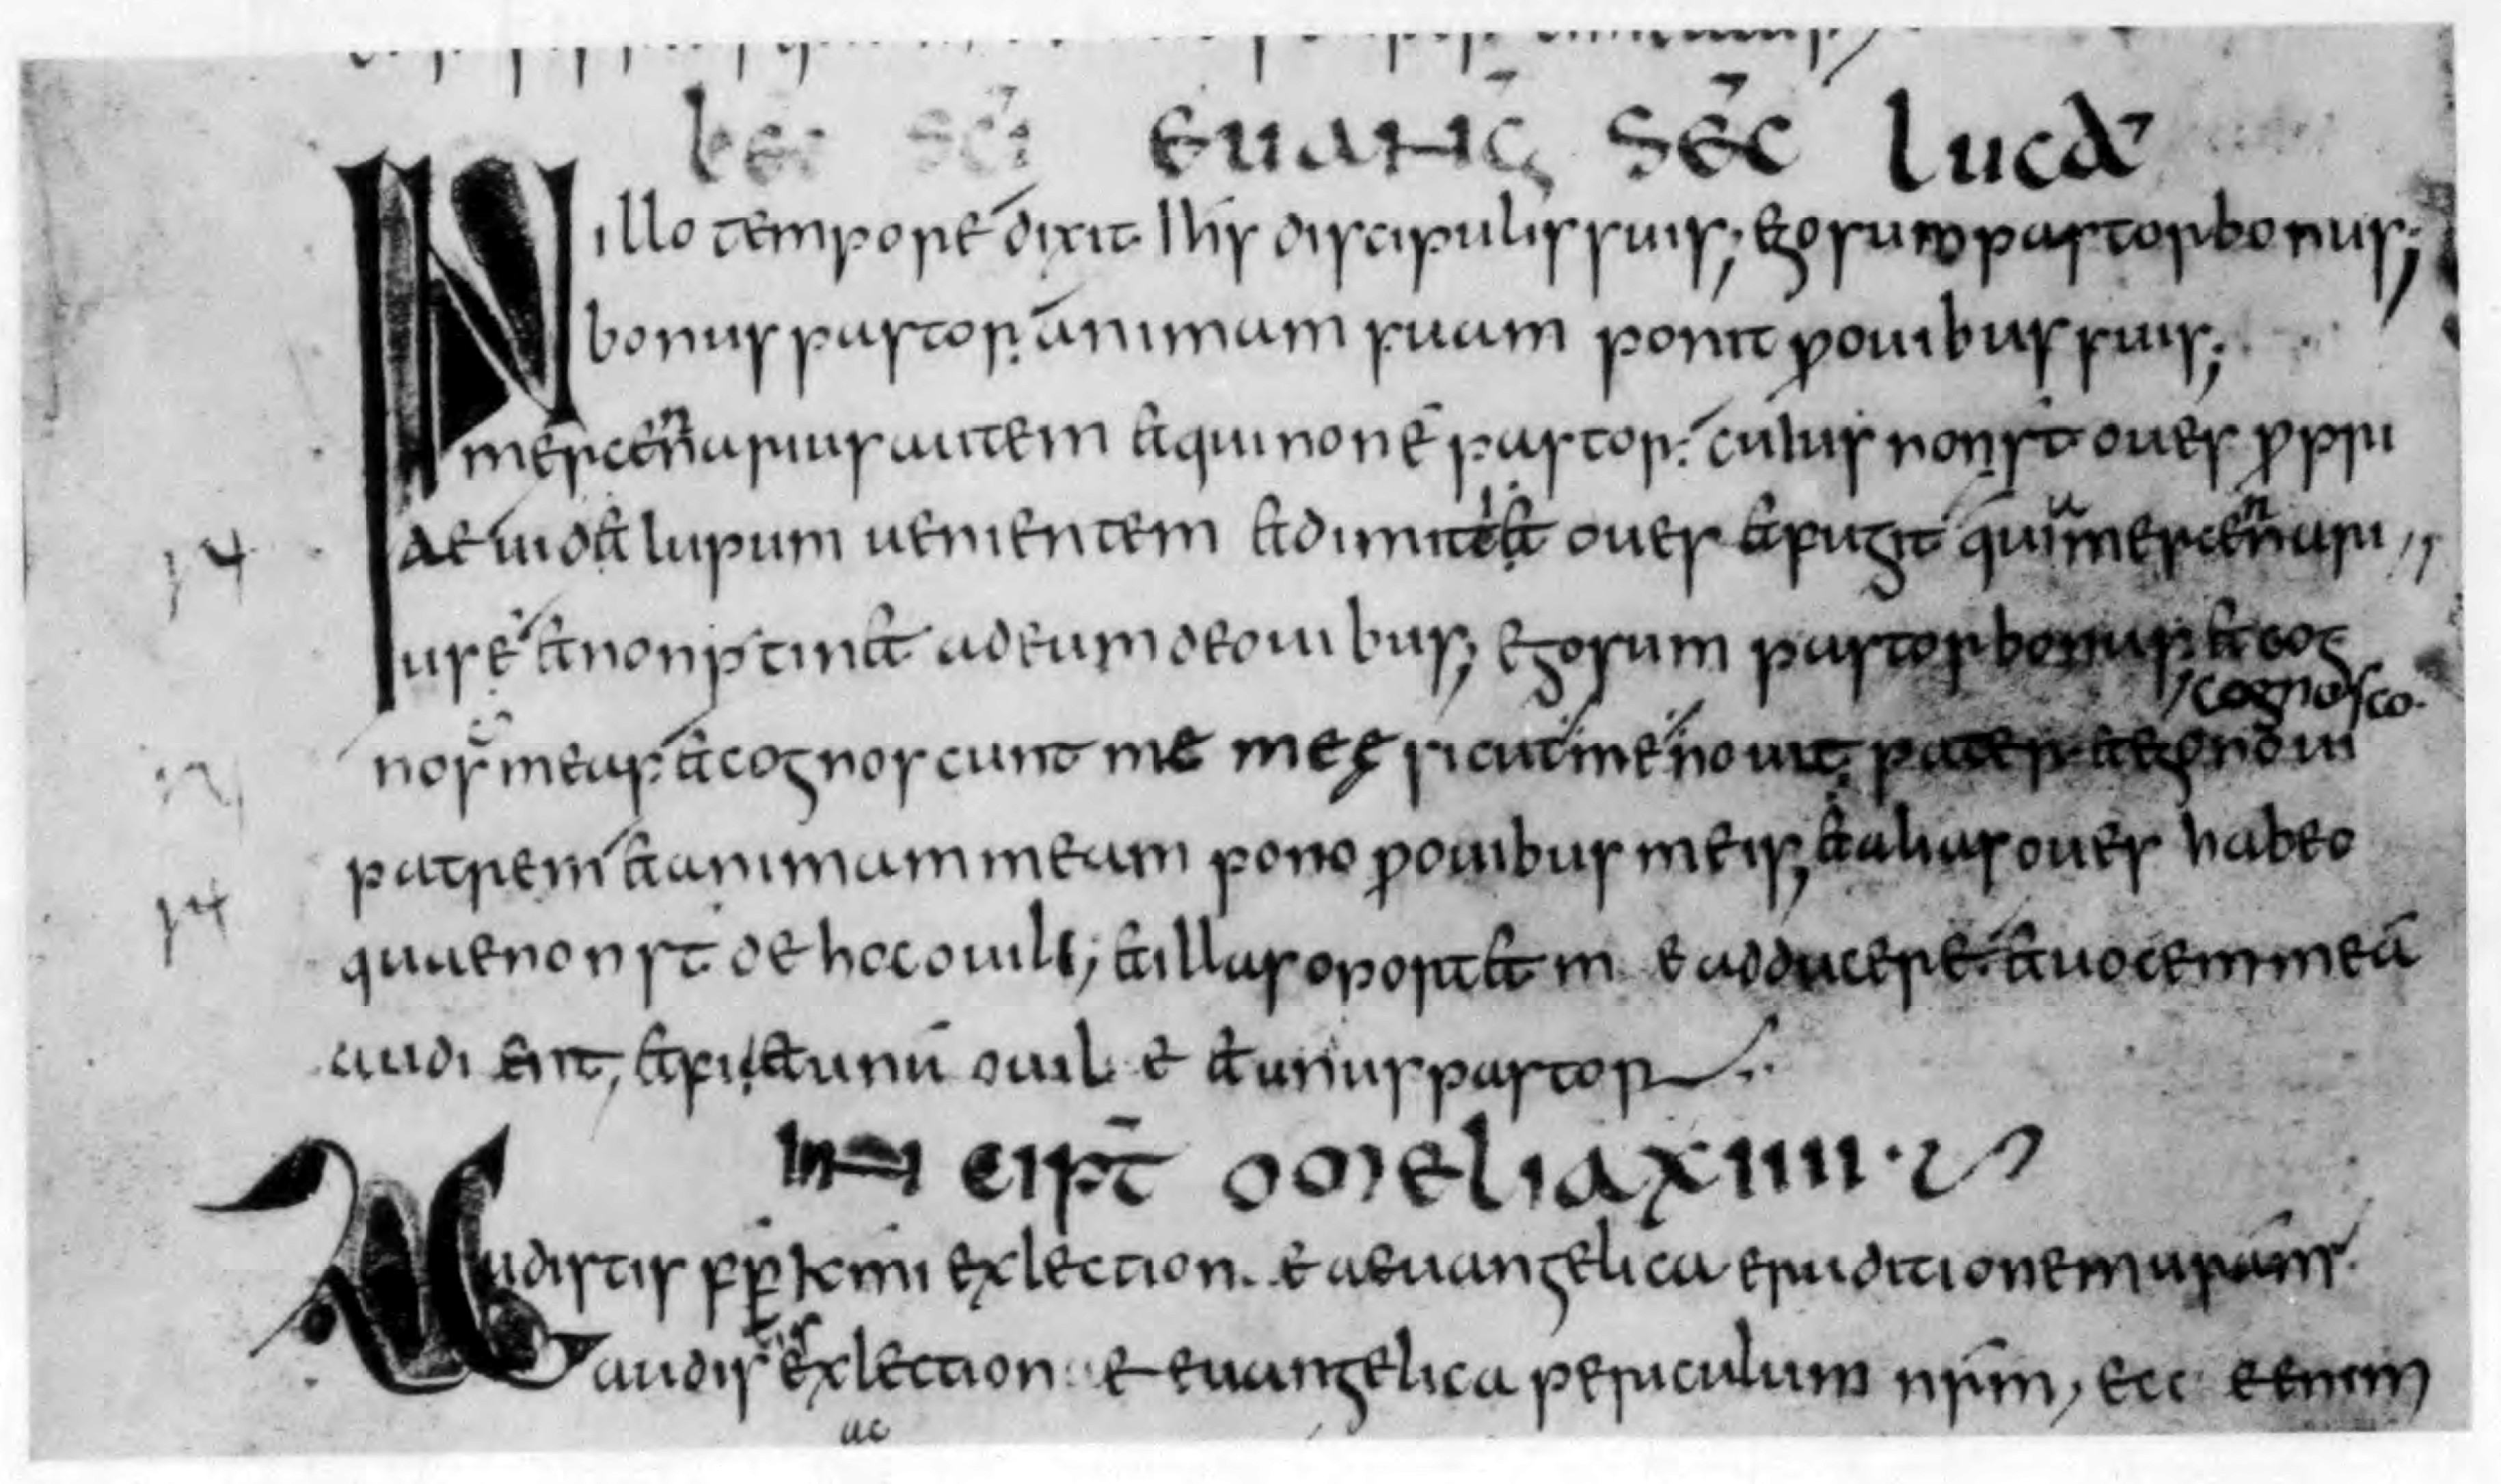 lec sc̄i euanḡ sēc lucae
IN illo tempore dixit ihs discipulis suis; ego sum pastor bonus;
bonus pastor animam suam ponit p ouibus suis;
mercennarius autem et qui non ē pastor. cuius non st oues ppri
ae uidet lupum uenientem et dimittet oues et fugit quia mercennari
us ē et non ptinet ad eum de ouibus; ego sum pastor bonus et cog
cognosco.
nosco meas. et cognoscunt me meę sicut me nouit pater et ego noui
patrem et animam meam pono p ouibus meis; et alias oues habeo
quae non st de hoc ouili; et illas oportet me adducere. et uocem meā
audient, et fiet unū ouile et unus pastor
INcipt̄ omelia xiiii.
Audistis ffr kmi ex lectione aeuangelica eruditionem uram.
audistis ex lectione euangelica periculum nrm, ecce enim